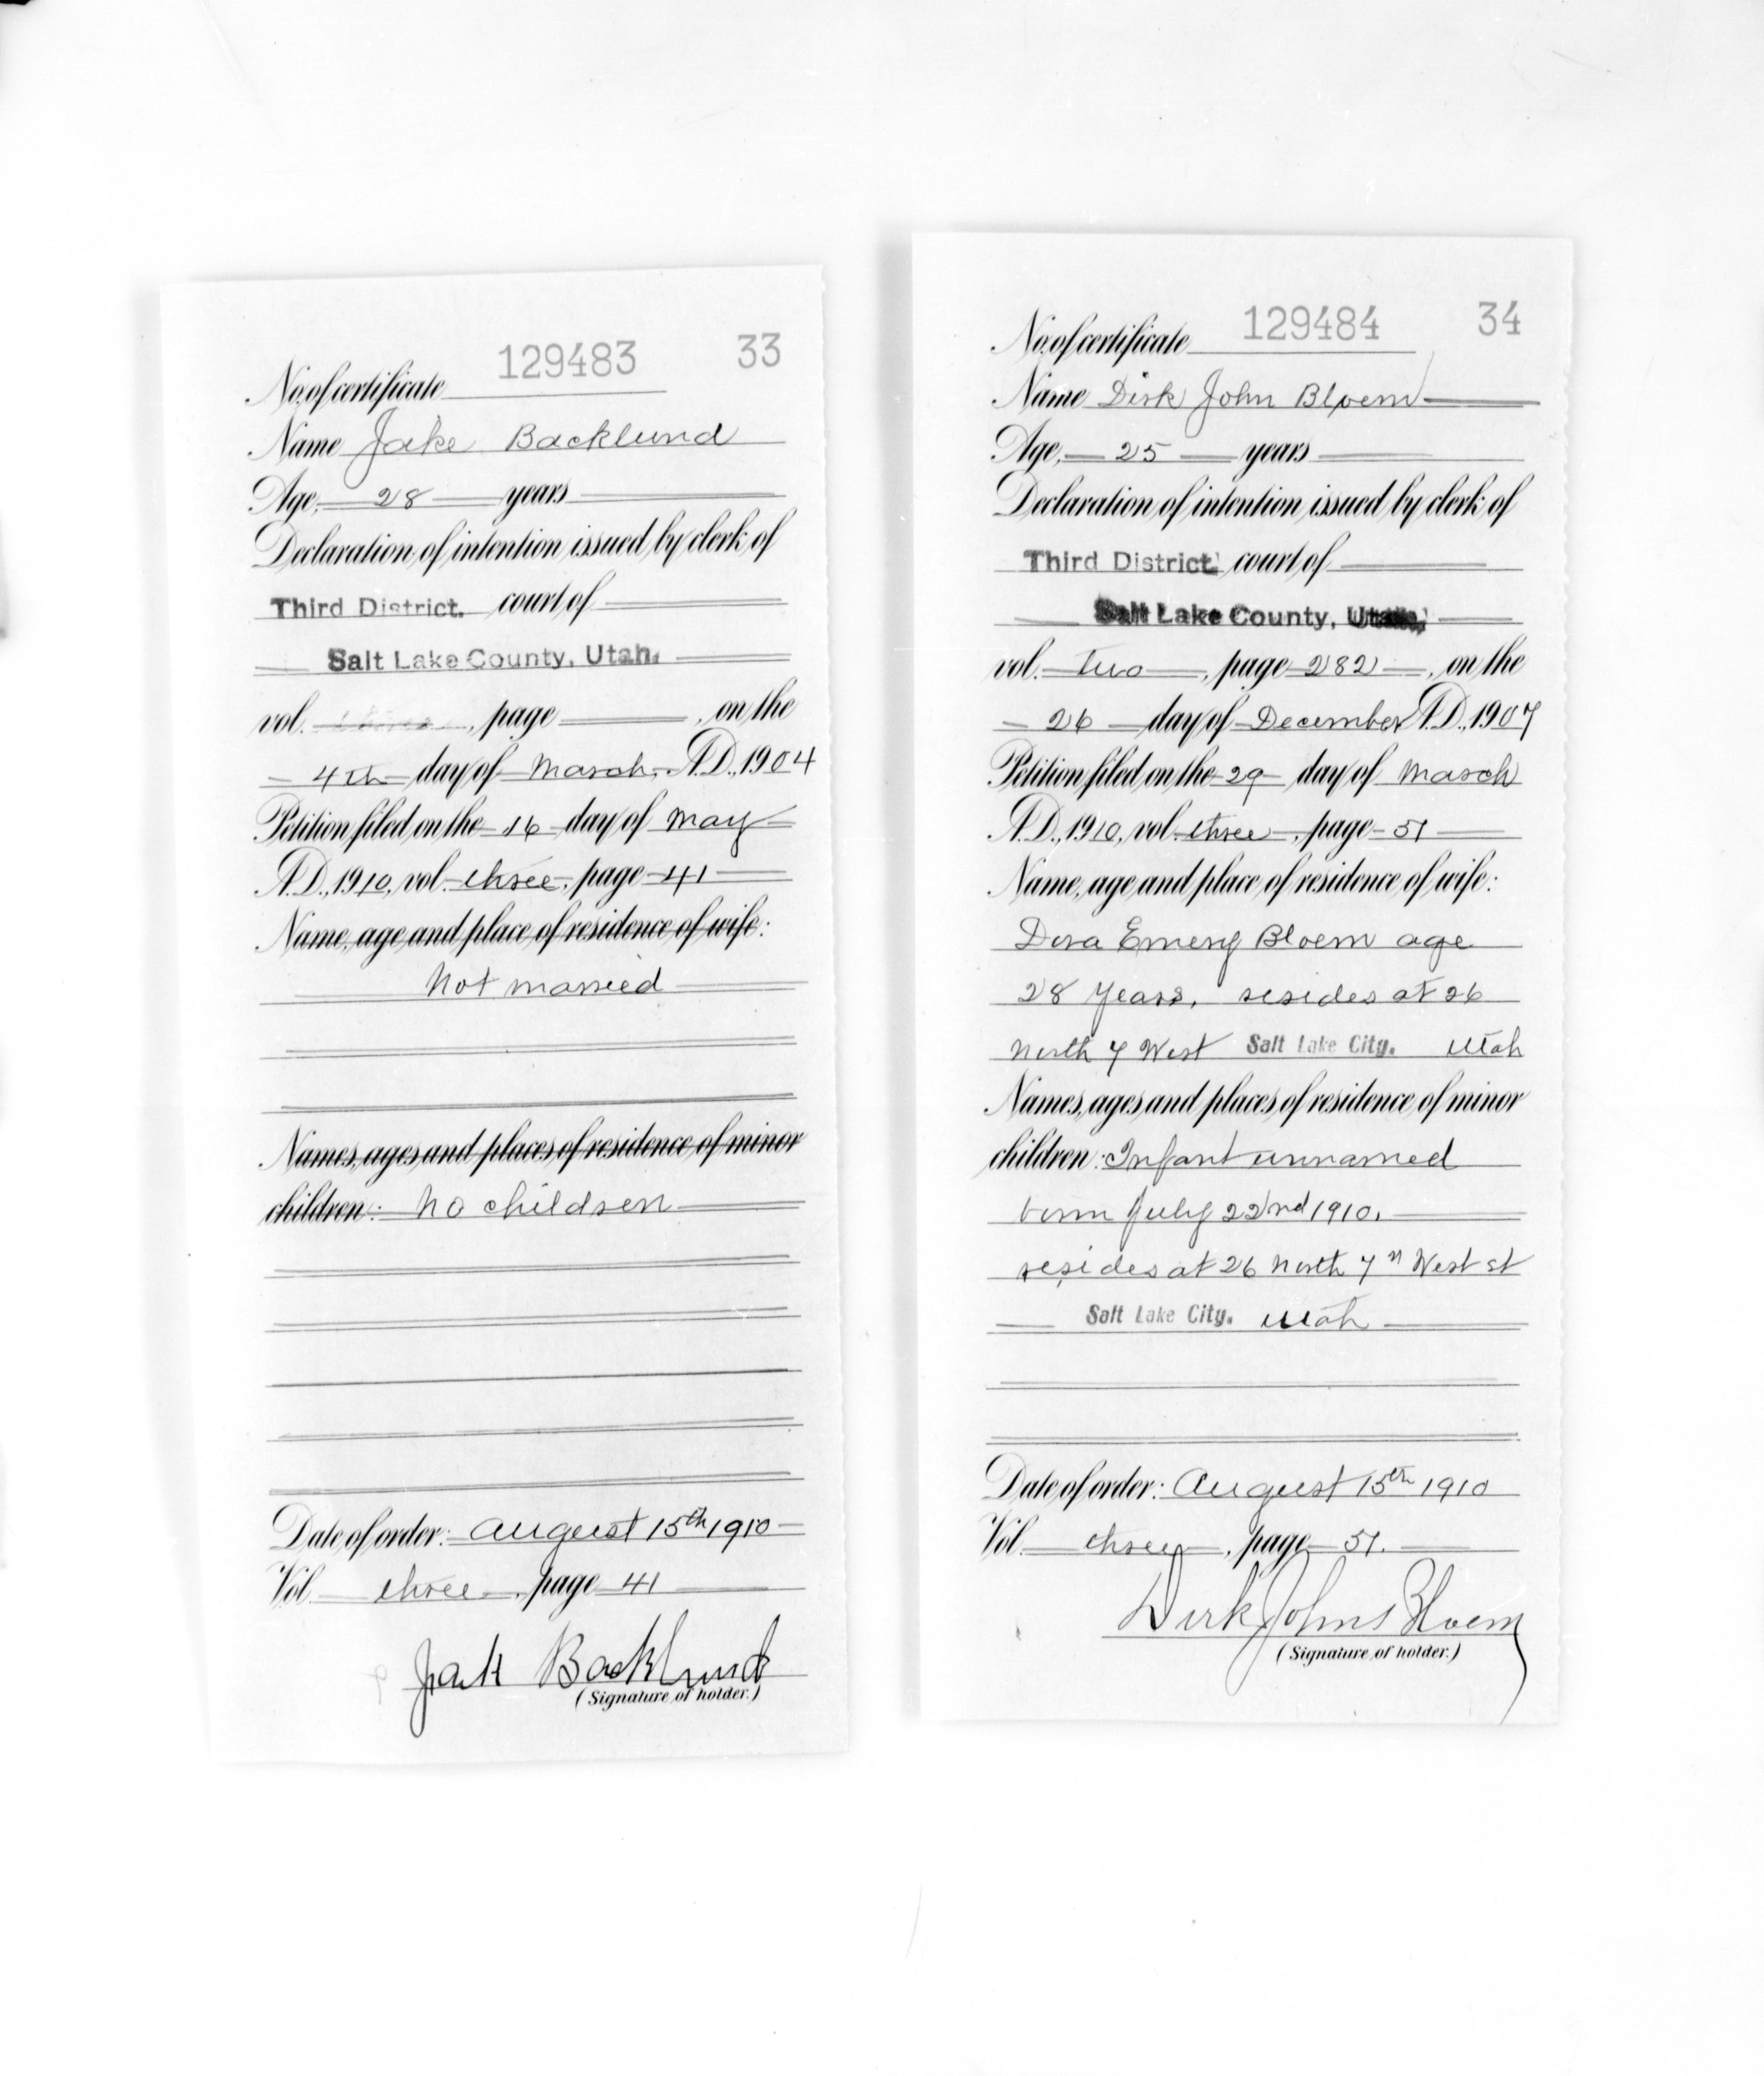 129483 33
No. of certificate
Name Jake Backlund
Age, 28 years
Declaration of intention issued by clerk of
Third District. court of
Salt Lake County, Utah.
vol. , page , on the
4th day of March, A.D., 1904
Petition filed on the 16 day of May
A.D., 1910, vol. three, page 41
Name, age and place of residence of wife:
Not married
Names, ages and places of residence of minor
children: No children
Date of order: August 15th 1910
Vol. three, page 41
Jack Backlund
(Signature of holder.)
129484 34
No. of certificate
Name Dirk John Bloem
Age, 25 years
Declaration of intention issued by clerk of
Third District. court of
Salt Lake County, Utah.
vol. two, page 282, on the
26 day of December A.D., 1907
Petition filed on the 29 day of March
A.D., 1910, vol. three, page 51
Name, age and place of residence of wife:
Dora Emery Bloem age
28 years, resides at 26
North 7 West Salt Lake City. Utah
Names, ages and places of residence of minor
children: Infant unnamed
born July 22nd 1910.
resides at 26 North 7th West st
Salt Lake City. Utah
Date of order: August 15th 1910
Vol. three, page 51.
Dirk John Bloem
(Signature of holder.)